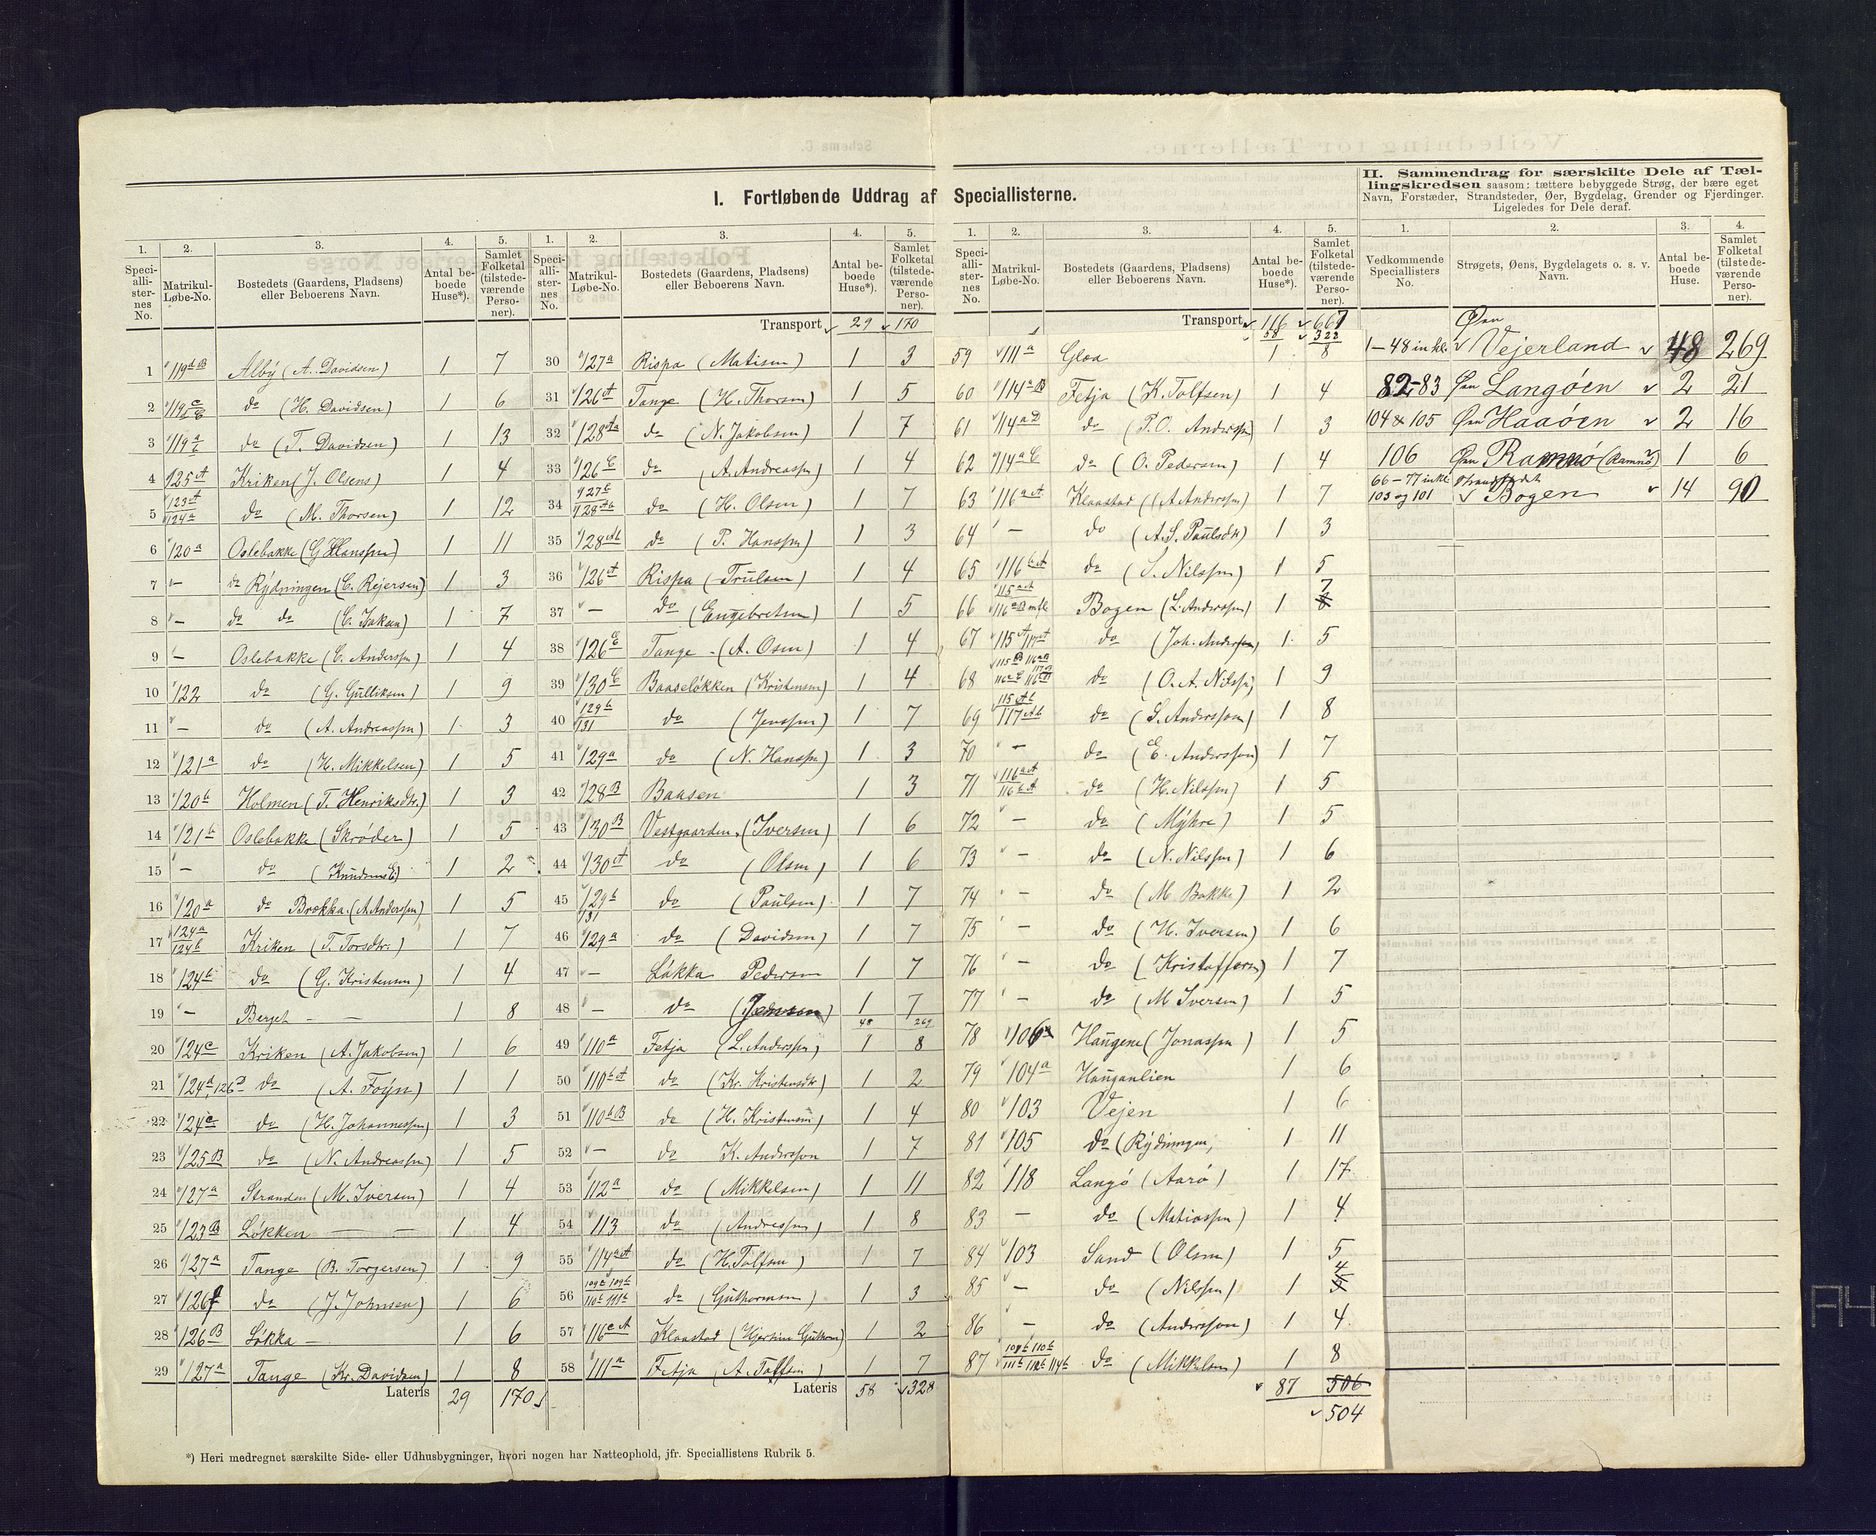 I. Fortløbende Uddrag af Speciallisterne.
II. Sammendrag for særskilte Dele af Tæl-
lingskredsen saasom: tættere bebyggede Strøg, der bære eget
Navn, Forstæder, Strandsteder, Øer, Bygdelag, Grender og Fjerdinger.
Ligeledes for Dele deraf.
1. Speciallisternes No. 2. Matrikul-Løbe-No. 3. Bostedets (Gaardens, Pladsens) eller Beboerens Navn. 4. Antal beboede Huse*). 5. Samlet Folketal (tilstedeværende Personer).
1 119 b B Alby (A. Davidsen) 1 7
2 do (H. Davidsen) 1 6
3 do (T. Davidsen) 1 13
4 125 A Kriken (J. Olsens) 1 4
5 123 A 124 a do (M. Thorsen) 1 12
6 120 a Oslebakke (G Hanssen) 1 11
7 — do Rydningen (C. Rejersen) 1 3
8 — do do 1 7
9 — Oslebakke (C. Anderssen) 1 4
10 122 do (G. Gulliksen) 1 9
11 — do (A. Andreassen) 1 3
12 121 a do (H. Mikkelsen) 1 5
13 120 b Holmen (T. Henriksdtr.) 1 3
14 121 b Oslebakke (Skrøder) 1 5
15 — do 1 2
16 120 a do Brække (A. Anderssen) 1 5
17 124 a 124 b Kriken (T. Torsdtr.) 1 7
18 124 b do (G. Kristensen) 1 4
19 — Berget — — 1 8
20 124 c Kriken (A. Jakobsen) 1 6
21 do (A. Foyn) 1 1
22 124 c do (H. Johannessen) 1 3
23 125 B do (N. Andreassen) 1 5
24 127 a Stranden (M. Iversen) 1 4
25 123 B Løkken — — 1 4
26 127 a Tange (B. Torgersen) 1 9
27 do (J. Johnsen) 1 6
28 126 B Løkka — 1 6
29 127 a Tange (Kr. Davidsen) 1 8
Lateris 29 170
Transport 29 170
30 127 a Rispa (Matisen) 1 3
31 126 A Tange (H. Thorsen) 1 5
32 128 Aa do (N. Jakobsen) 1 7
33 126 C do (A. Andreassen) 1 4
34 do (H. Olsen) 1 7
35 128 Ab do (P. Hanssen) 1 3
36 126 A Rispa (Trulsen) 1 4
37 — do (Engebretsen) 1 5
38 126 C Tange (A. Osen) 1 4
39 130 C Baaseløkken (Kristensen) 1 4
40 129 b 131 do (Jenssen) 1 7
41 129 a do (N. Hanssen) 1 3
42 128 B Baasen 1 3
43 130 B Vestgaarden (Iversen) 1 6
44 130 A do (Olsen) 1 6
45 129 b 131 do (Paulsen) 1 7
46 129 a do (Davidsen) 1 7
47 — Løkka Pedersen 1 7
48 — do 1 7
48 269
49 110 a Fetja (L. Anderssen) 1 8
50 110 b A do (Kr. Kristensdtr) 1 2
51 110 b B do (H. Kristensen) 1 4
52 — do K. Andersson 1 7
53 112 a do (Mikkelsen) 1 11
54 113 do (Andreassen) 1 8
55 114 a A do (H. Tolfsen) 1 7
56 do (Guthormsen) 1 3
57 116 c A Klaastad 1 2
58 111 a Fetja (A. Toffsen) 1 7
Lateris 58 328
Transport 116 661
58 322
59 111 a Gloa 1 8
60 114 a B Fetja (K. Tolfsen) 1 4
61 114 a D do (P.O. Anderssen) 1 3
62 114 a C do (O. Pedersen) 1 4
63 116 a A Klaastad (A Anderssen) 1 7
64 — do (A.S. Paulsdtr) 1 3
65 116 b A do (S. Nilssen) 1 5
66 Bogen (L. Anderssen) 1 7
67 do (Joh. Anderssen) 1 5
68 do (O. A. Nilssen) 1 9
69 115 Ab 117 Ab do (S. Andersson) 1 8
70 — do (E. Andersson) 1 7
71 116 a A 116 b A do (H. Nilssen) 1 5
72 — do (Myhre) 1 5
73 — do (N. Nilssen) 1 6
74 — do (M Bakke) 1 2
75 — do (H. Iversen) 1 6
76 — do (Kristoffersen) 1 7
77 — do (M Iversen) 1 5
78 106 Haugene (Jonassen) 1 5
79 104 a Hauganlien 1 6
80 103 Vejen 1 6
81 105 do (Rydningen) 1 11
82 118 Langø (Aarø) 1 17
83 — do (Matiassen) 1 4
84 103 Sand (Olsen) 1 5
85 — do (Nilssen) 1 4
86 — do (Andersson) 1 4
87 do (Mikkelsen) 1 8
87 506
504
1. Vedkommende Speciallisters No. 2. Strøgets, Øens, Bygdelagets o. s. v. Navn. 3. Antal beboede Huse. 4. Samlet Folketal (tilstedeværende Personer).
1–48 inkl. Øen Vejerland 48 269
82–83 Øen Langøen 2 21
104 & 105 Øen Haaøen 2 16
106 Øen Ramnø (Ramnø) 1 6
66–77 inkl. 103 og 101 Strandstedet Bogen 14 90
*) Heri medregnet særskilte Side- eller Udhusbygninger, hvori nogen har Natteophold, jfr. Speciallistens Rubrik 5.